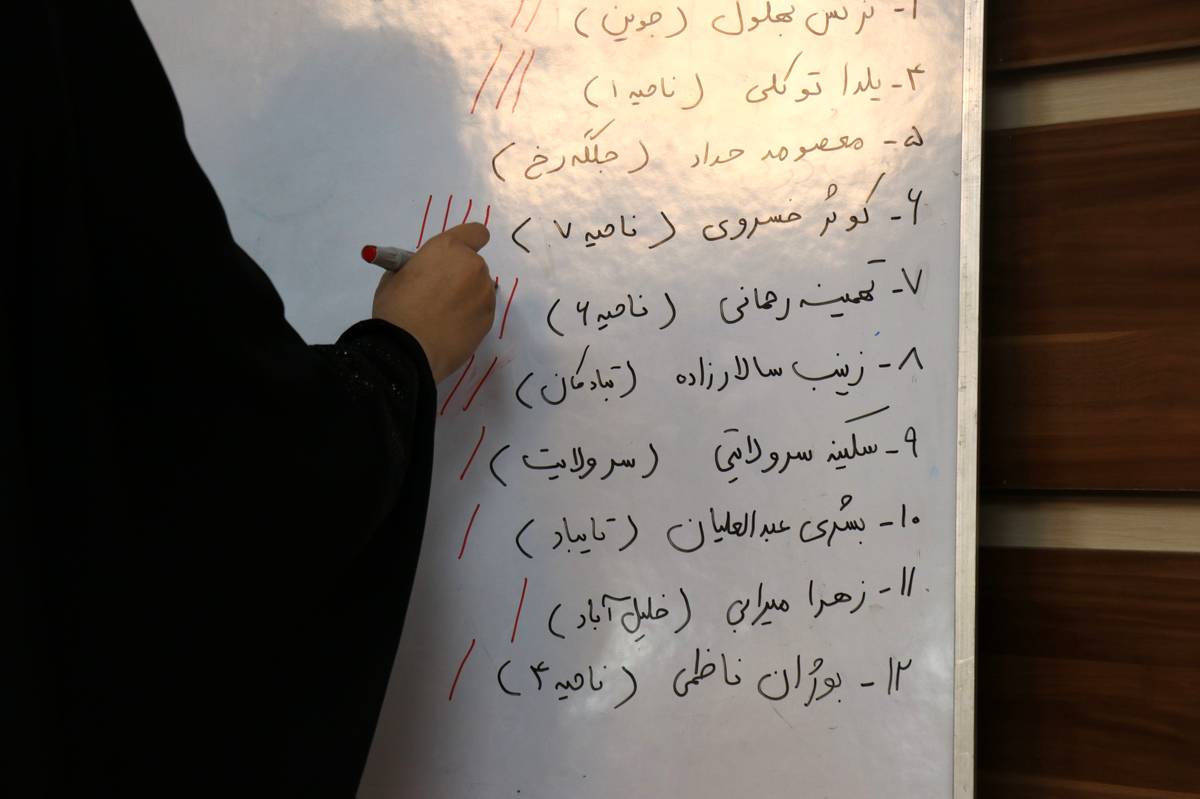 نرگس بهلول (جوین)
۴- یلدا توکلی (ناحیه ۱)
۵- معصومه حداد (جلگه رخ)
۶- کوثر خسروی (ناحیه ۷)
۷- تهمینه رحمانی (ناحیه ۶)
۸- زینب سالارزاده (تبادکان)
۹- سکینه سرولایتی (سرولایت)
۱۰- بشری عبدالعلیان (تایباد)
۱۱- زهرا میرابی (خلیل آباد)
۱۲- بوژان ناظمی (ناحیه ۴)